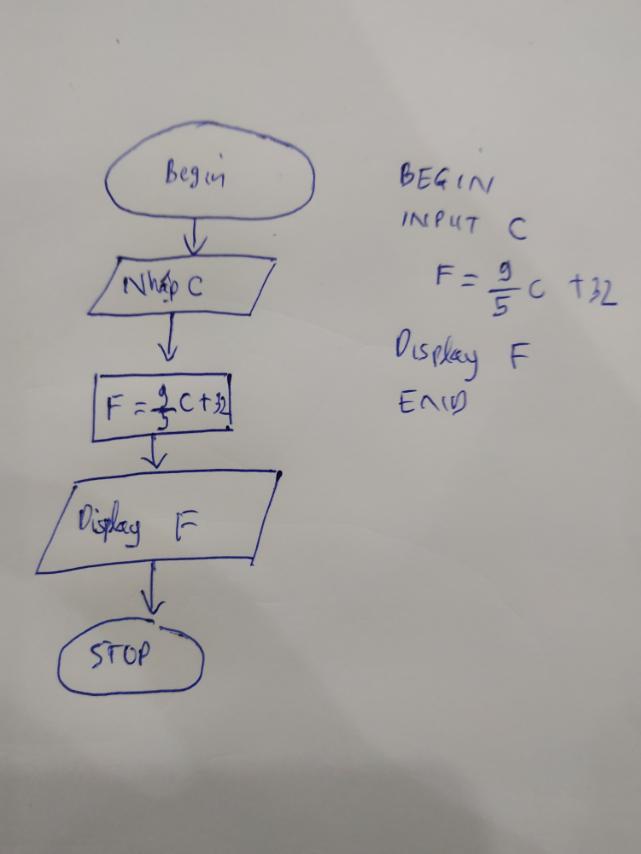 Begin
Nhập C
F = 9/5 C + 32
Display F
STOP
BEGIN
INPUT C
F = 9/5 C + 32
Display F
END